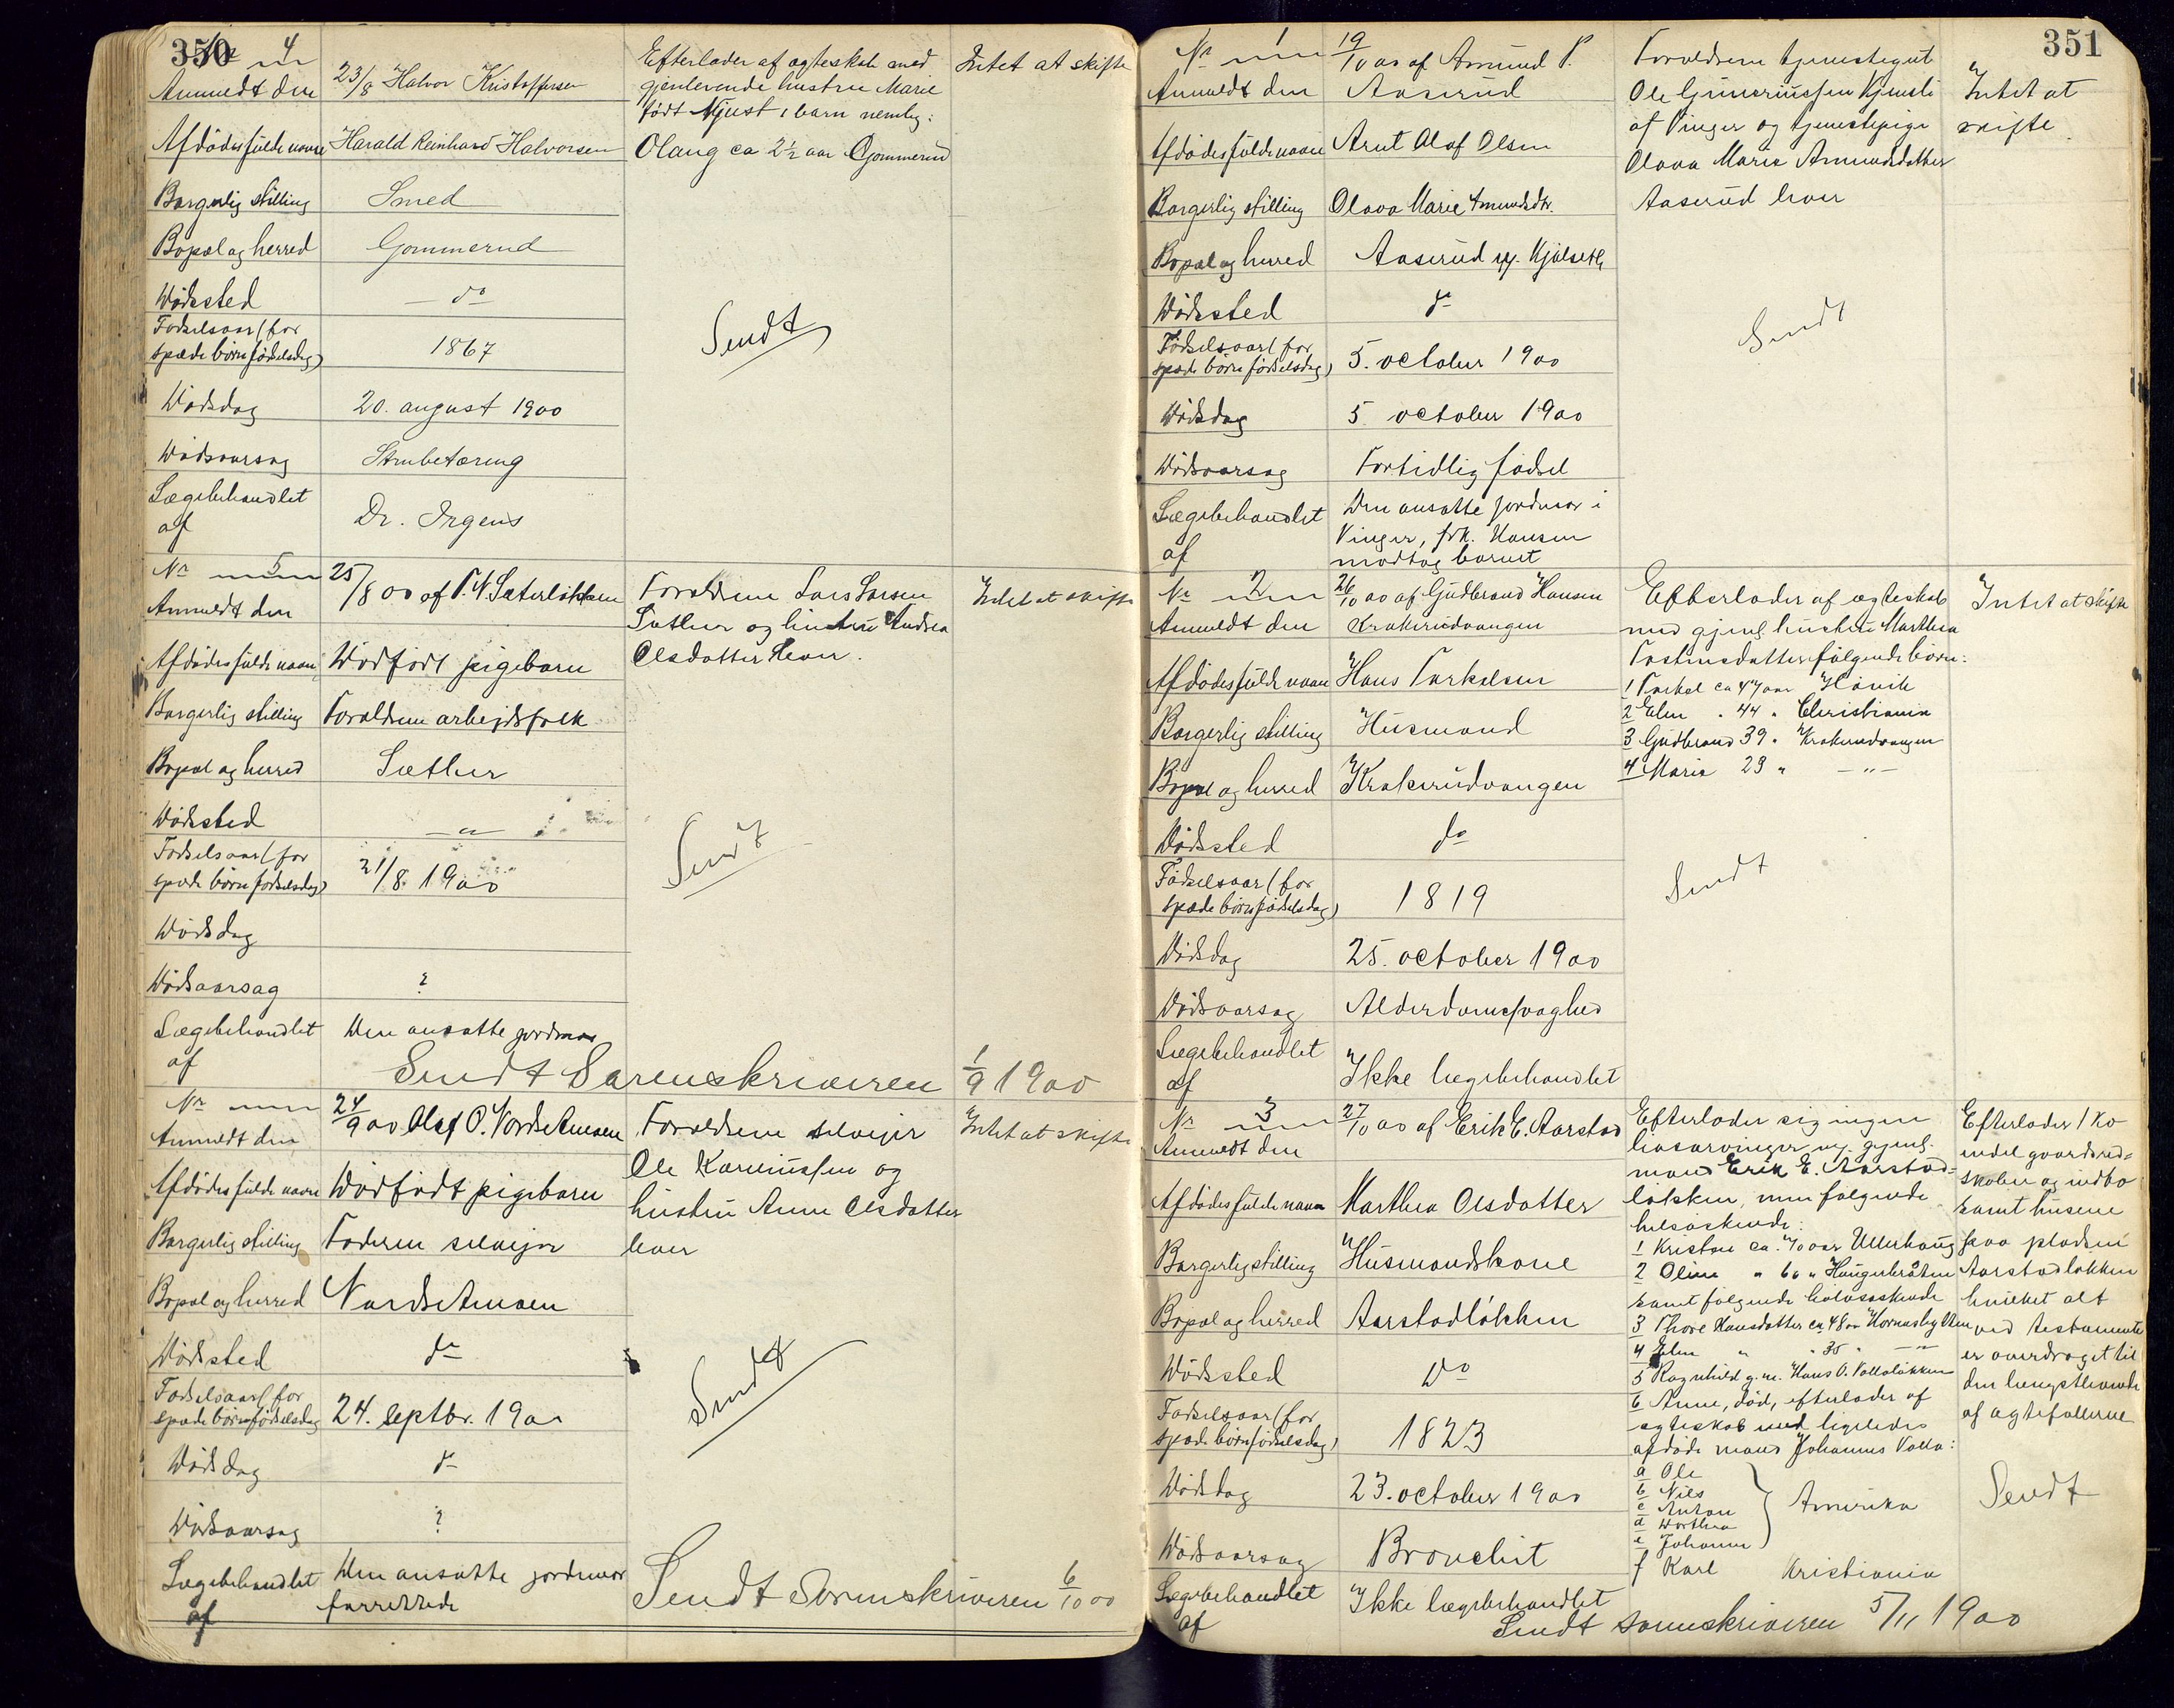 350
Nr 4
Anmeldt den 23/8 Halvor Kristoffersen
Afdødes fulde navn Harald Reinhard Halvorsen
Borgerlig stilling Smed
Bopæl og herred Gommerud
Dødssted do
Fødselsaar (for
spæde børn fødselsdag) 1867
Dødsdag 20. august 1900
Dødsaarsag Strubetæring
Lægebehandlet
af Dr. Irgens
Efterlader af ægteskab med
gjenlevende hustru Marie
født 1 barn nemlig:
Olaug ca 2½ aar Gommerud
Intet at skifte
Sendt
Nr 5
Anmeldt den 25/8 00 af P. N. Sæterløkken
Afdødes fulde navn Dødfødt pigebarn
Borgerlig stilling Forældrene arbejdsfolk
Bopæl og herred Sæther
Dødssted — " —
Fødselsaar (for
spæde børn fødselsdag) 21/8 1900
Dødsdag
Dødsaarsag ?
Lægebehandlet
af Den ansatte jordmor
Forældrene Lars Larsen
Sæther og hustru Andrea
Olsdatter lever.
Intet at skifte
Sendt
Sendt Sorenskriveren 1/9 1900
Nr
Anmeldt den 24/9 00 Olaf O. Nordre
Afdødes fulde navn Dødfødt pigebarn
Borgerlig stilling Faderen selveier
Bopæl og herred Nordre
Dødssted do
Fødselsaar (for
spæde børn fødselsdag 24. septbr. 1900
Dødsdag do
Dødsaarsag ?
Lægebehandlet
af Den ansatte jordmor
forrettede
Forældrene selveier
Ole Kareniussen og
hustru Anne Olsdatter
lever
Intet at skifte
Sendt
Sendt Sorenskriveren 6/10 00
351
Nr 1
Anmeldt den 19/10 00 af Amund P.
Aaserud
Afdødes fulde navn Arnt Olaf Olsen
Borgerlig stilling Olava Marie Amundsdtr.
Bopæl og herred Aaserud
Dødssted do
Fødselsaar (for
spæde børn fødselsdag) 5. october 1900
Dødsdag 5. october 1900
Dødsaarsag Fortidlig fødsel
Lægebehandlet
af Den ansatte jordmor i
Vinger, frk. Hansen
modtog barnet
Forældrene tjenestegut
Ole Guneriussen
af Vinger og tjenestepige
Olava Marie Amundsdatter
Aaserud lever
Intet at
skifte
Sendt
Nr 2
Anmeldt den 26/10 00 af Gudbrand Hansen
Krakerudvangen
Afdødes fulde navn Hans Torkelsen
Borgerlig stilling Husmand
Bopæl og herred Krakerudvangen
Dødssted do
Fødselsaar (for
spæde børn fødselsdag) 1819
Dødsdag 25. october 1900
Dødsaarsag Alderdomssvaghed
Lægebehandlet
af Ikke lægebehandlet
Efterlader af ægteskab
med gjenl. hustru Marthea
Tostensdatter følgende børn:
1 Torkel ca 47 aar Høvik
2 Elen " 44 " Christiania
3 Gudbrand 39 " Krakerudvangen
4 Marie 29 " — " —
Intet at skifte
Sendt
Nr 3
Anmeldt den 27/10 00 af Erik E. Aarstad
Afdødes fulde navn Marthea Olsdatter
Borgerlig stilling Husmandskone
Bopæl og herred Aarstadløkken
Dødssted Do
Fødselsaar (for
spæde børn fødselsdag) 1823
Dødsdag 23. october 1900
Dødsaarsag Bronchit
Lægebehandlet
af Ikke lægebehandlet
Efterlader sig ingen
livsarvinger og gjenl.
mand Erik E. Aarstad-
løkken, men følgende
helsøskende:
1 Kristine ca. 70 aar Ullerhaug
2 Oline " 60 " Haugerbråten
samt følgende halvsøskende
3 Thore Hansdatter ca 48 aar
4 Elen " " 35 " — " —
5 Ragnhild g. m. Hans O.
6 Anne, død, efterlader af
ægteskab med ligeledes
afdøde mand Johannes Volla:
a Ole
b Nils
c Anton
d Dorthea
e Johanne
Amerika
f Karl Kristiania
Efterlader 1 ko
endel gaardsred-
skaber og indbo
samt husene
paa pladsen
Aarstadløkken
hvilket alt
ved testamente
er overdraget til
den længstlevende
af ægtefællerne
Sendt
Sendt sorenskriveren 5/11 1900